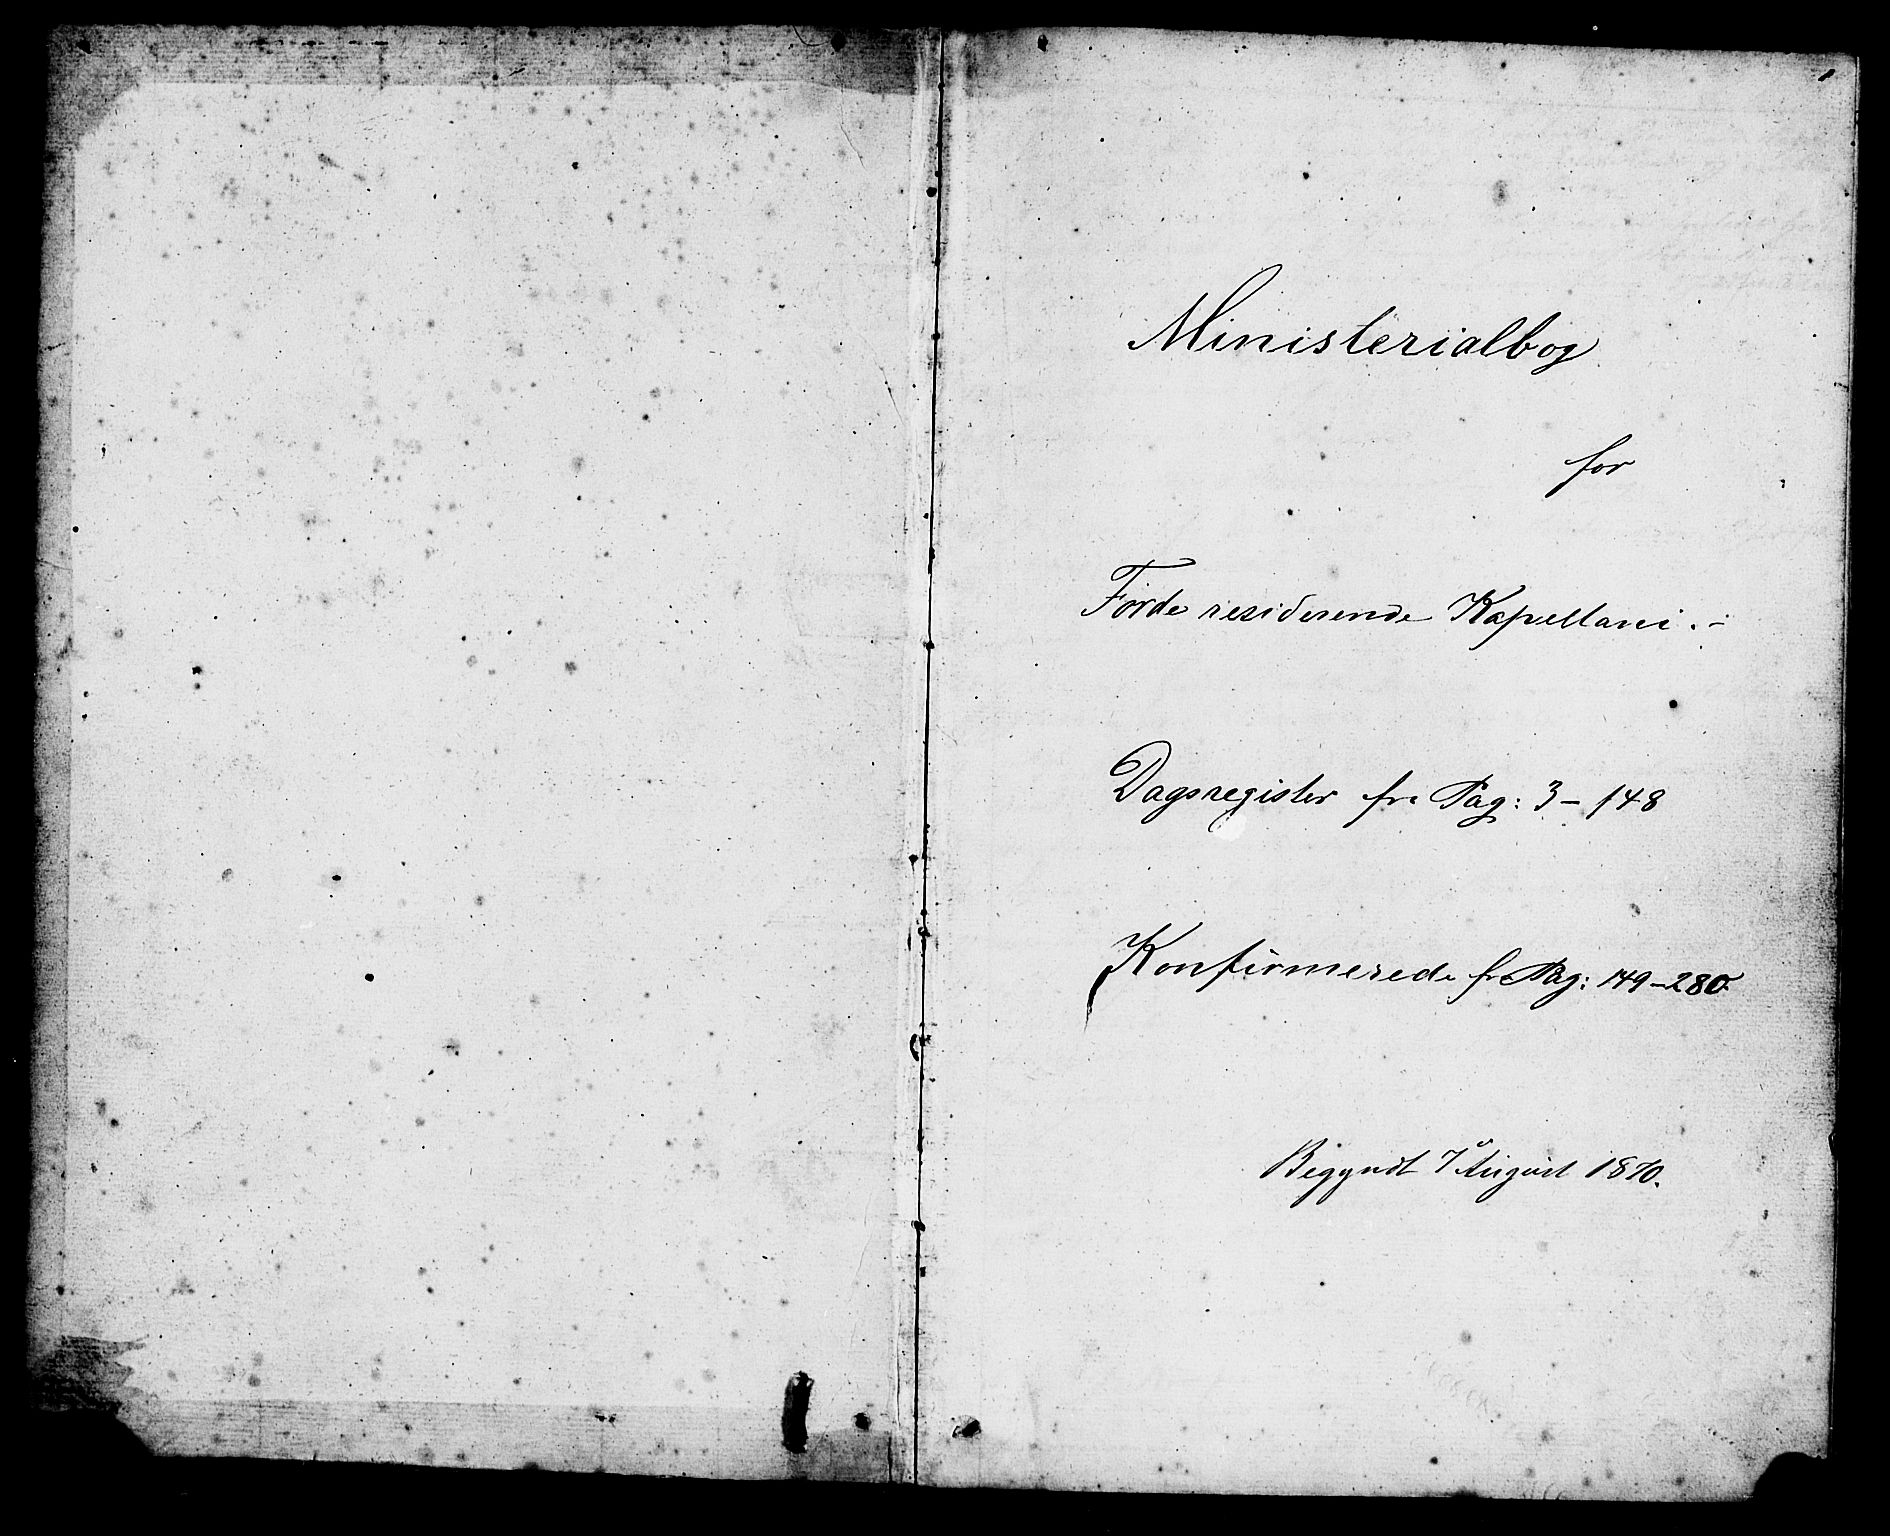 Ministerialbog
for
Førde residerende Kapellani.-
Dagsregister fra Pag: 3-148
Konfirmerede fra Pag: 149-280.
Begyndt 7 August 1870.